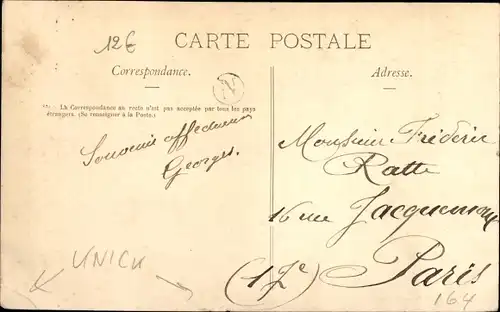 12€
CARTE POSTALE
Correspondance.
Adresse.
La Correspondance au recto n'est pas acceptée par tous les pays
étrangers. (Se renseigner à la Poste.)
Souvenir affectueux
Georges.
Monsieur Fréderic
Ratte
16 rue Jacquemont
Paris
(17e)
UNICU
164